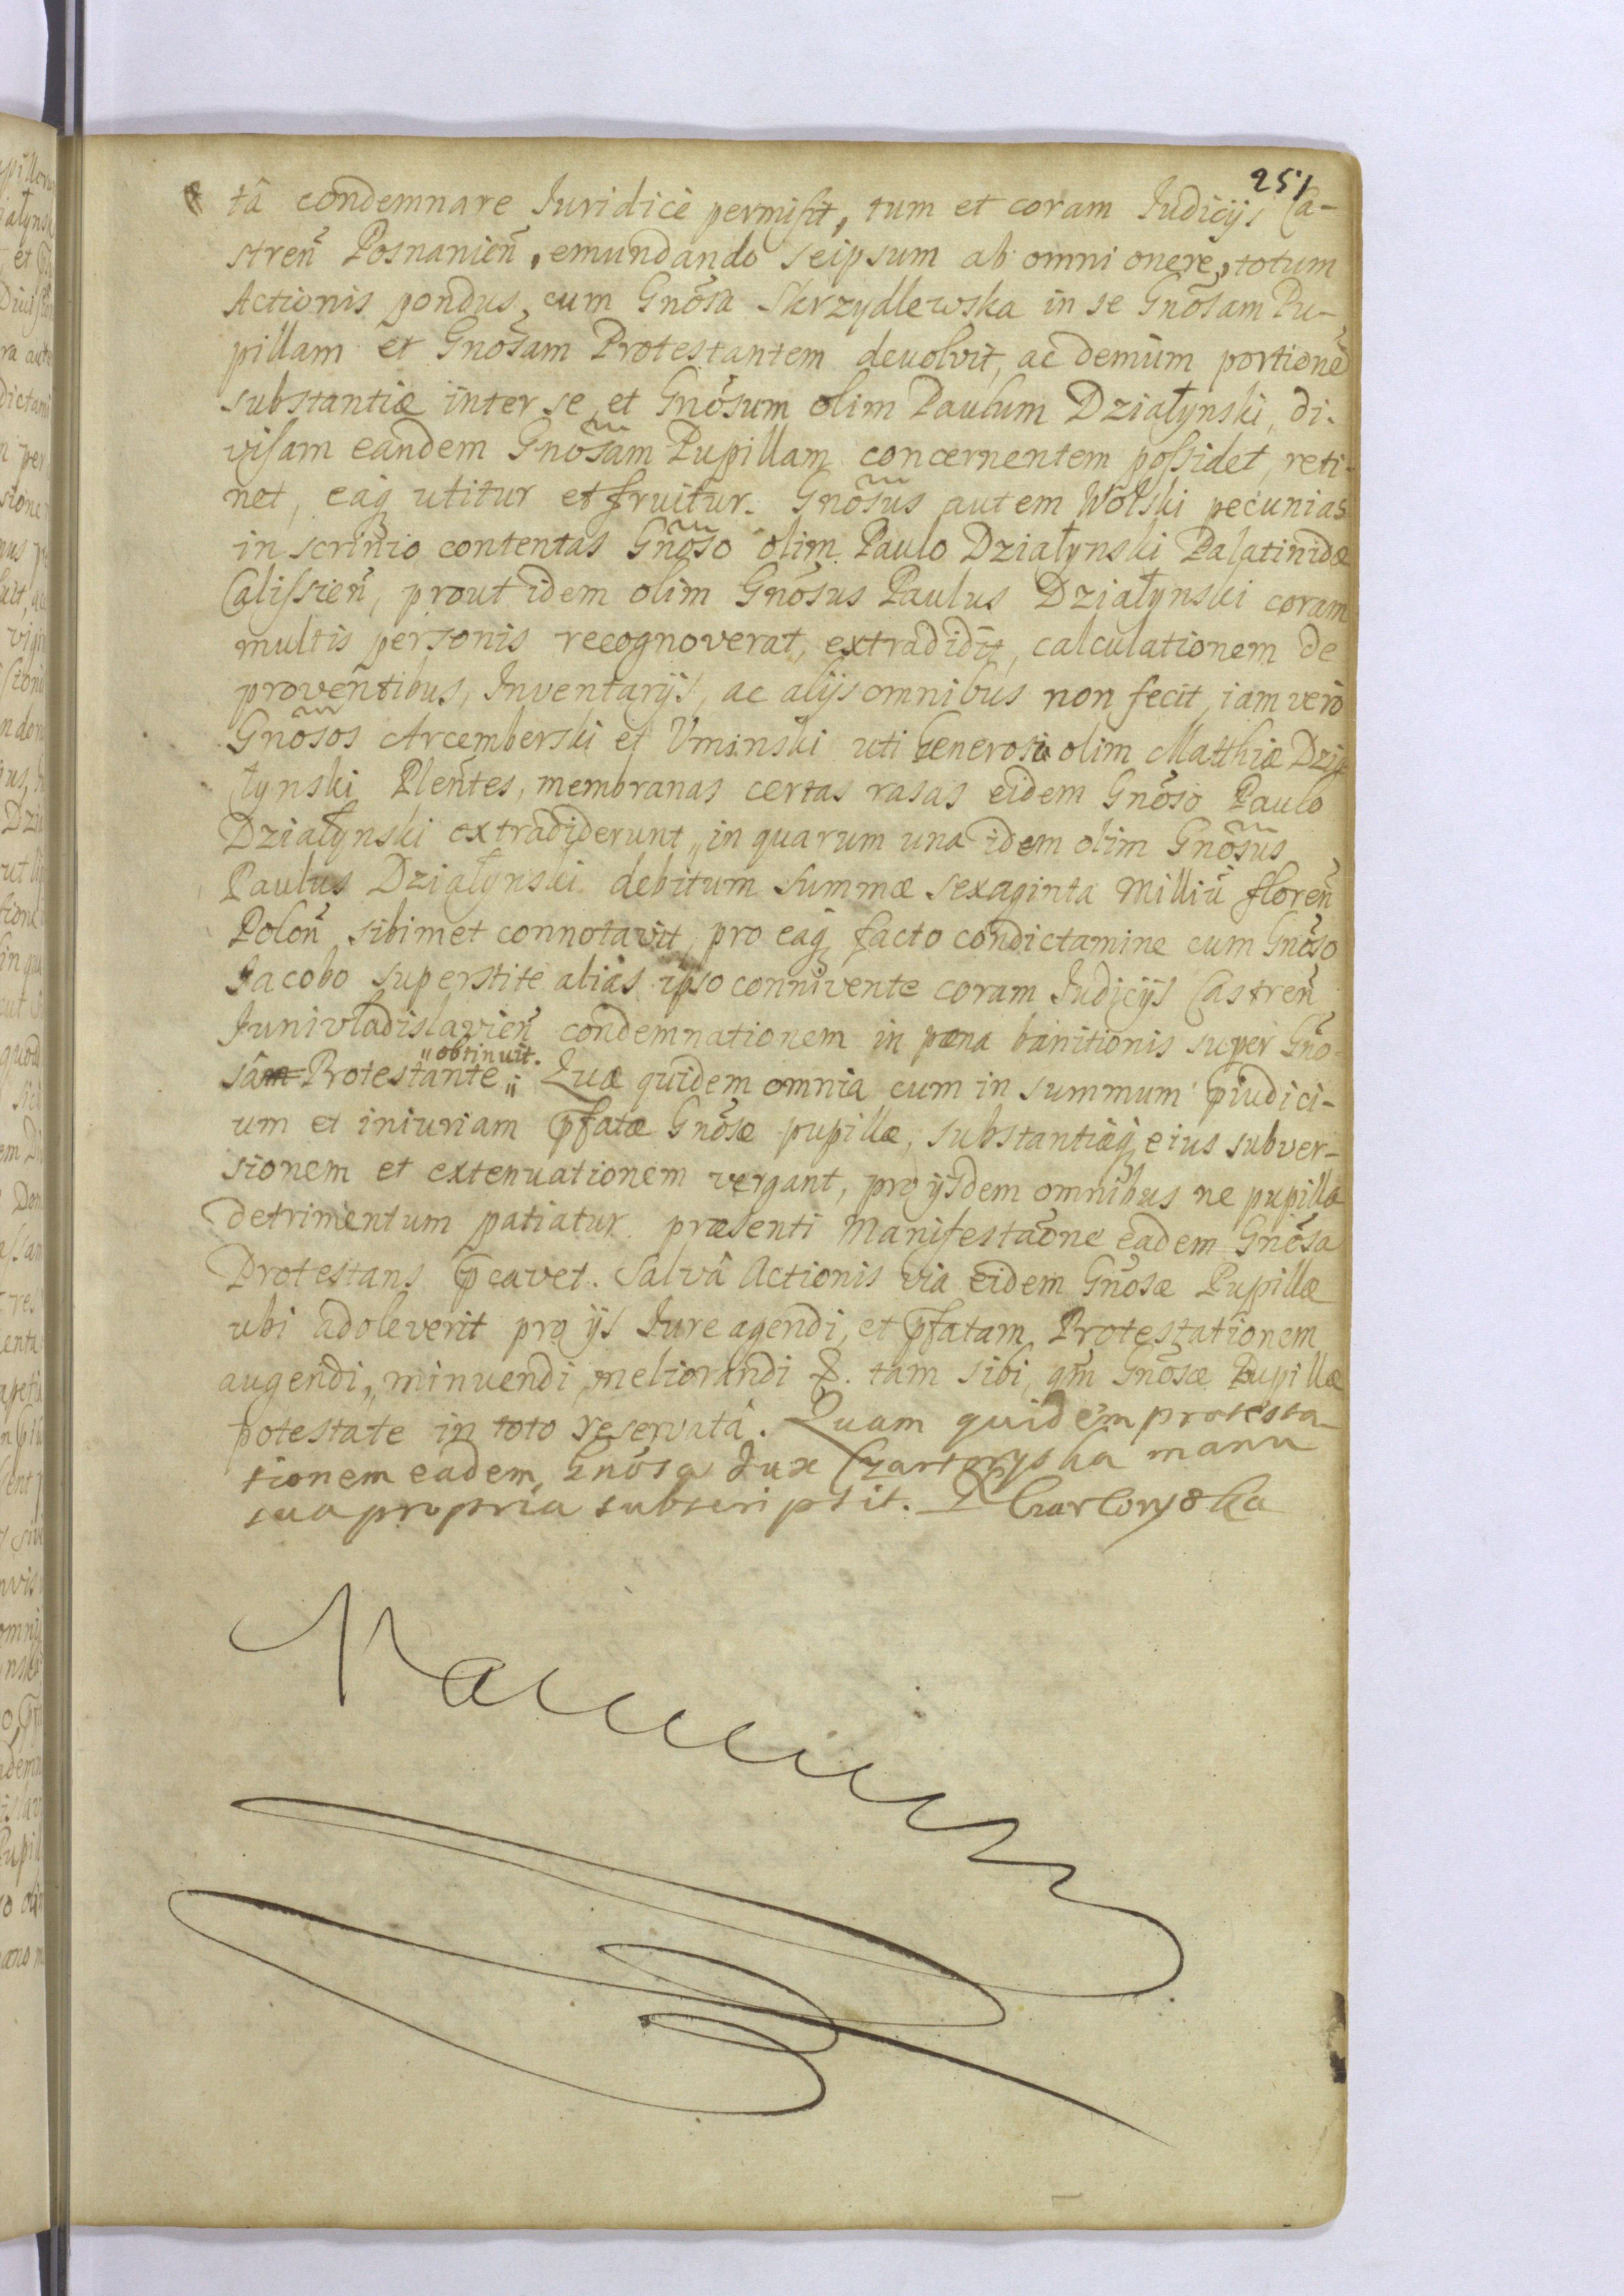 251
tâ condemnare Iuridicè permisit, tum et coram Iudicijs Ca-
stren̄ Posnanien̄, emundando seipsum ab omni onere, totum
Actionis pondus cum Gnõsa Skrzydlewska in se Gnõsam Pu-
pillam et Gnõsam Protestantem devolvit, ac demùm portionẽ
substantiæ inter se et Gnõsum olim Paulum Działynski, di-
visam eandem Gnõsam Pupillam concernentem possidet, reti-
net, eaq̨ utitur et fruitur. Gnõsus autem Wolski pecunias
in scrinio contentas Gnõso olim Paulo Działynski Palatinidæ
Calissien̄, prout idem olim Gnõsus Paulus Działynski coram
multis personis recognoverat, extradidit, calculationem de
proventibus, Inventarijs, ac alijs omnibus non fecit, iam verò
Gnõsos Arcemberski et Vminski uti Generosi olim Matthiæ Dzia
łynski Plen̄tes, membranas certas rasas eidem Gnõso Paulo
Działynski extradiderunt, in quarum una idem olim Gnõsus
Paulus Działynski debitum summæ sexaginta milliũ floren̄
Polon̄ sibimet connotavit, pro eaq̨ facto condictamine cum Gnõso
Jacobo superstite aliàs ipso connivente coram Iudicijs Castren̄
Junivladislavien̄ condemnationem in pœna banitionis super Gnõ-
"obtinuit.
sâm Protestante " Quæ quidem omnia cum in summum p̄iudici-
um et iniuriam p̄fatæ Gnõsæ pupillæ, substantiæq̨ eius subver-
sionem et extenuationem vergant, pro ijsdem omnibus ne pupilla
detrimentum patiatur præsenti Manifestaõne eadem Gnõsa
Protestans p̄cavet. Salvâ Actionis via eidem Gnõsæ Pupillæ
ubi adoleverit pro ijs Iure agendi, et p̄fatam Protestationem
augendi, minuendi, meliorandi &. tam sibi, qm̄ Gnõsæ Pupillæ
potestate in toto reservatâ. Quam quidem protesta-
tionem eadem Gnõsa Dux Czartoryska manu
sua propria subscripsit. Czartoryska